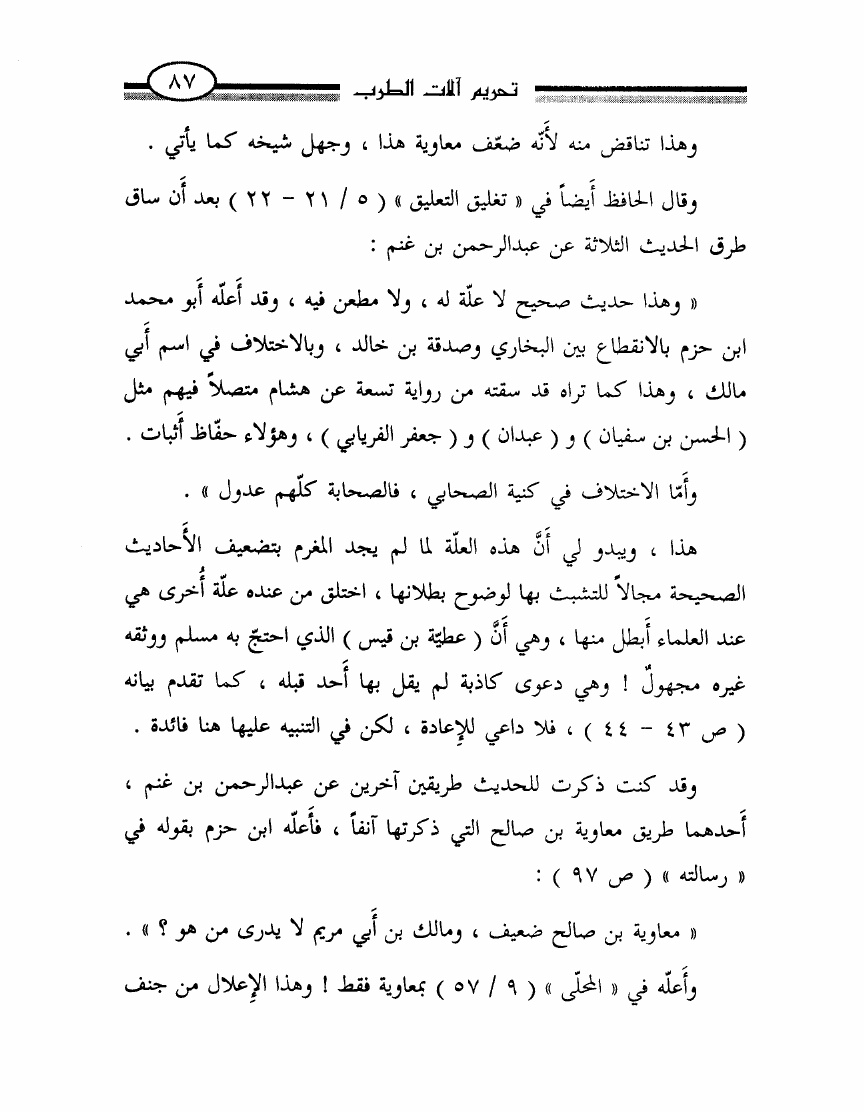 تحريم آلات الطرب ٨٧
وهذا تناقض منه لأَنّه ضعّف معاوية هذا ، وجهل شيخه كما يأتي .
وقال الحافظ أَيضاً في « تغليق التعليق » ( ٥ / ٢١ – ٢٢ ) بعد أَن ساق
طرق الحديث الثلاثة عن عبدالرحمن بن غنم :
« وهذا حديث صحيح لا علّة له ، ولا مطعن فيه ، وقد أَعلّه أَبو محمد
ابن حزم بالانقطاع بين البخاري وصدقة بن خالد ، وبالاختلاف في اسم أَبي
مالك ، وهذا كما تراه قد سقته من رواية تسعة عن هشام متصلاً فيهم مثل
( الحسن بن سفيان ) و ( عبدان ) و ( جعفر الفريابي ) ، وهؤلاء حفّاظ أَثبات .
وأَمّا الاختلاف في كنية الصحابي ، فالصحابة كلّهم عدول » .
هذا ، ويبدو لي أَنَّ هذه العلّة لما لم يجد المغرم بتضعيف الأَحاديث
الصحيحة مجالاً للتشبث بها لوضوح بطلانها ، اختلق من عنده علّة أُخرى هي
عند العلماء أَبطل منها ، وهي أَنَّ ( عطيّة بن قيس ) الذي احتجّ به مسلم ووثقه
غيره مجهولٌ ! وهي دعوى كاذبة لم يقل بها أَحد قبله ، كما تقدم بيانه
( ص ٤٣ – ٤٤ ) ، فلا داعي للإعادة ، لكن في التنبيه عليها هنا فائدة .
وقد كنت ذكرت للحديث طريقين آخرين عن عبدالرحمن بن غنم ،
أَحدهما طريق معاوية بن صالح التي ذكرتها آنفاً ، فأَعلّه ابن حزم بقوله في
« رسالته » ( ص ٩٧ ) :
« معاوية بن صالح ضعيف ، ومالك بن أَبي مريم لا يدرى من هو ؟ » .
وأَعلّه في « المحلّى » ( ٩ / ٥٧ ) بمعاوية فقط ! وهذا الإعلال من جنف